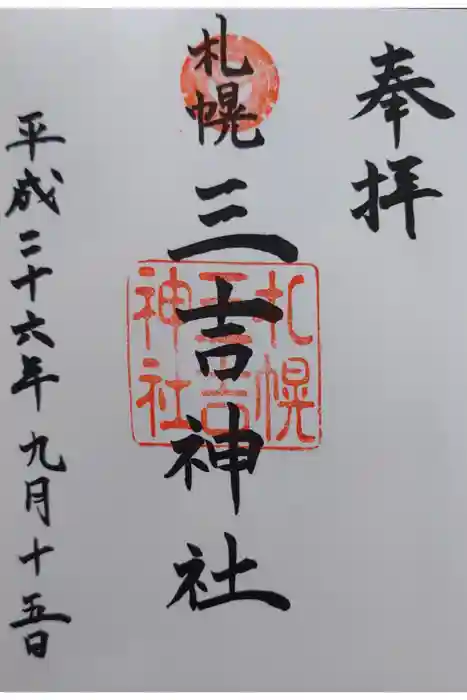 奉拝
札幌
三吉神社
札幌
三吉
神社
平成二十六年九月十五日